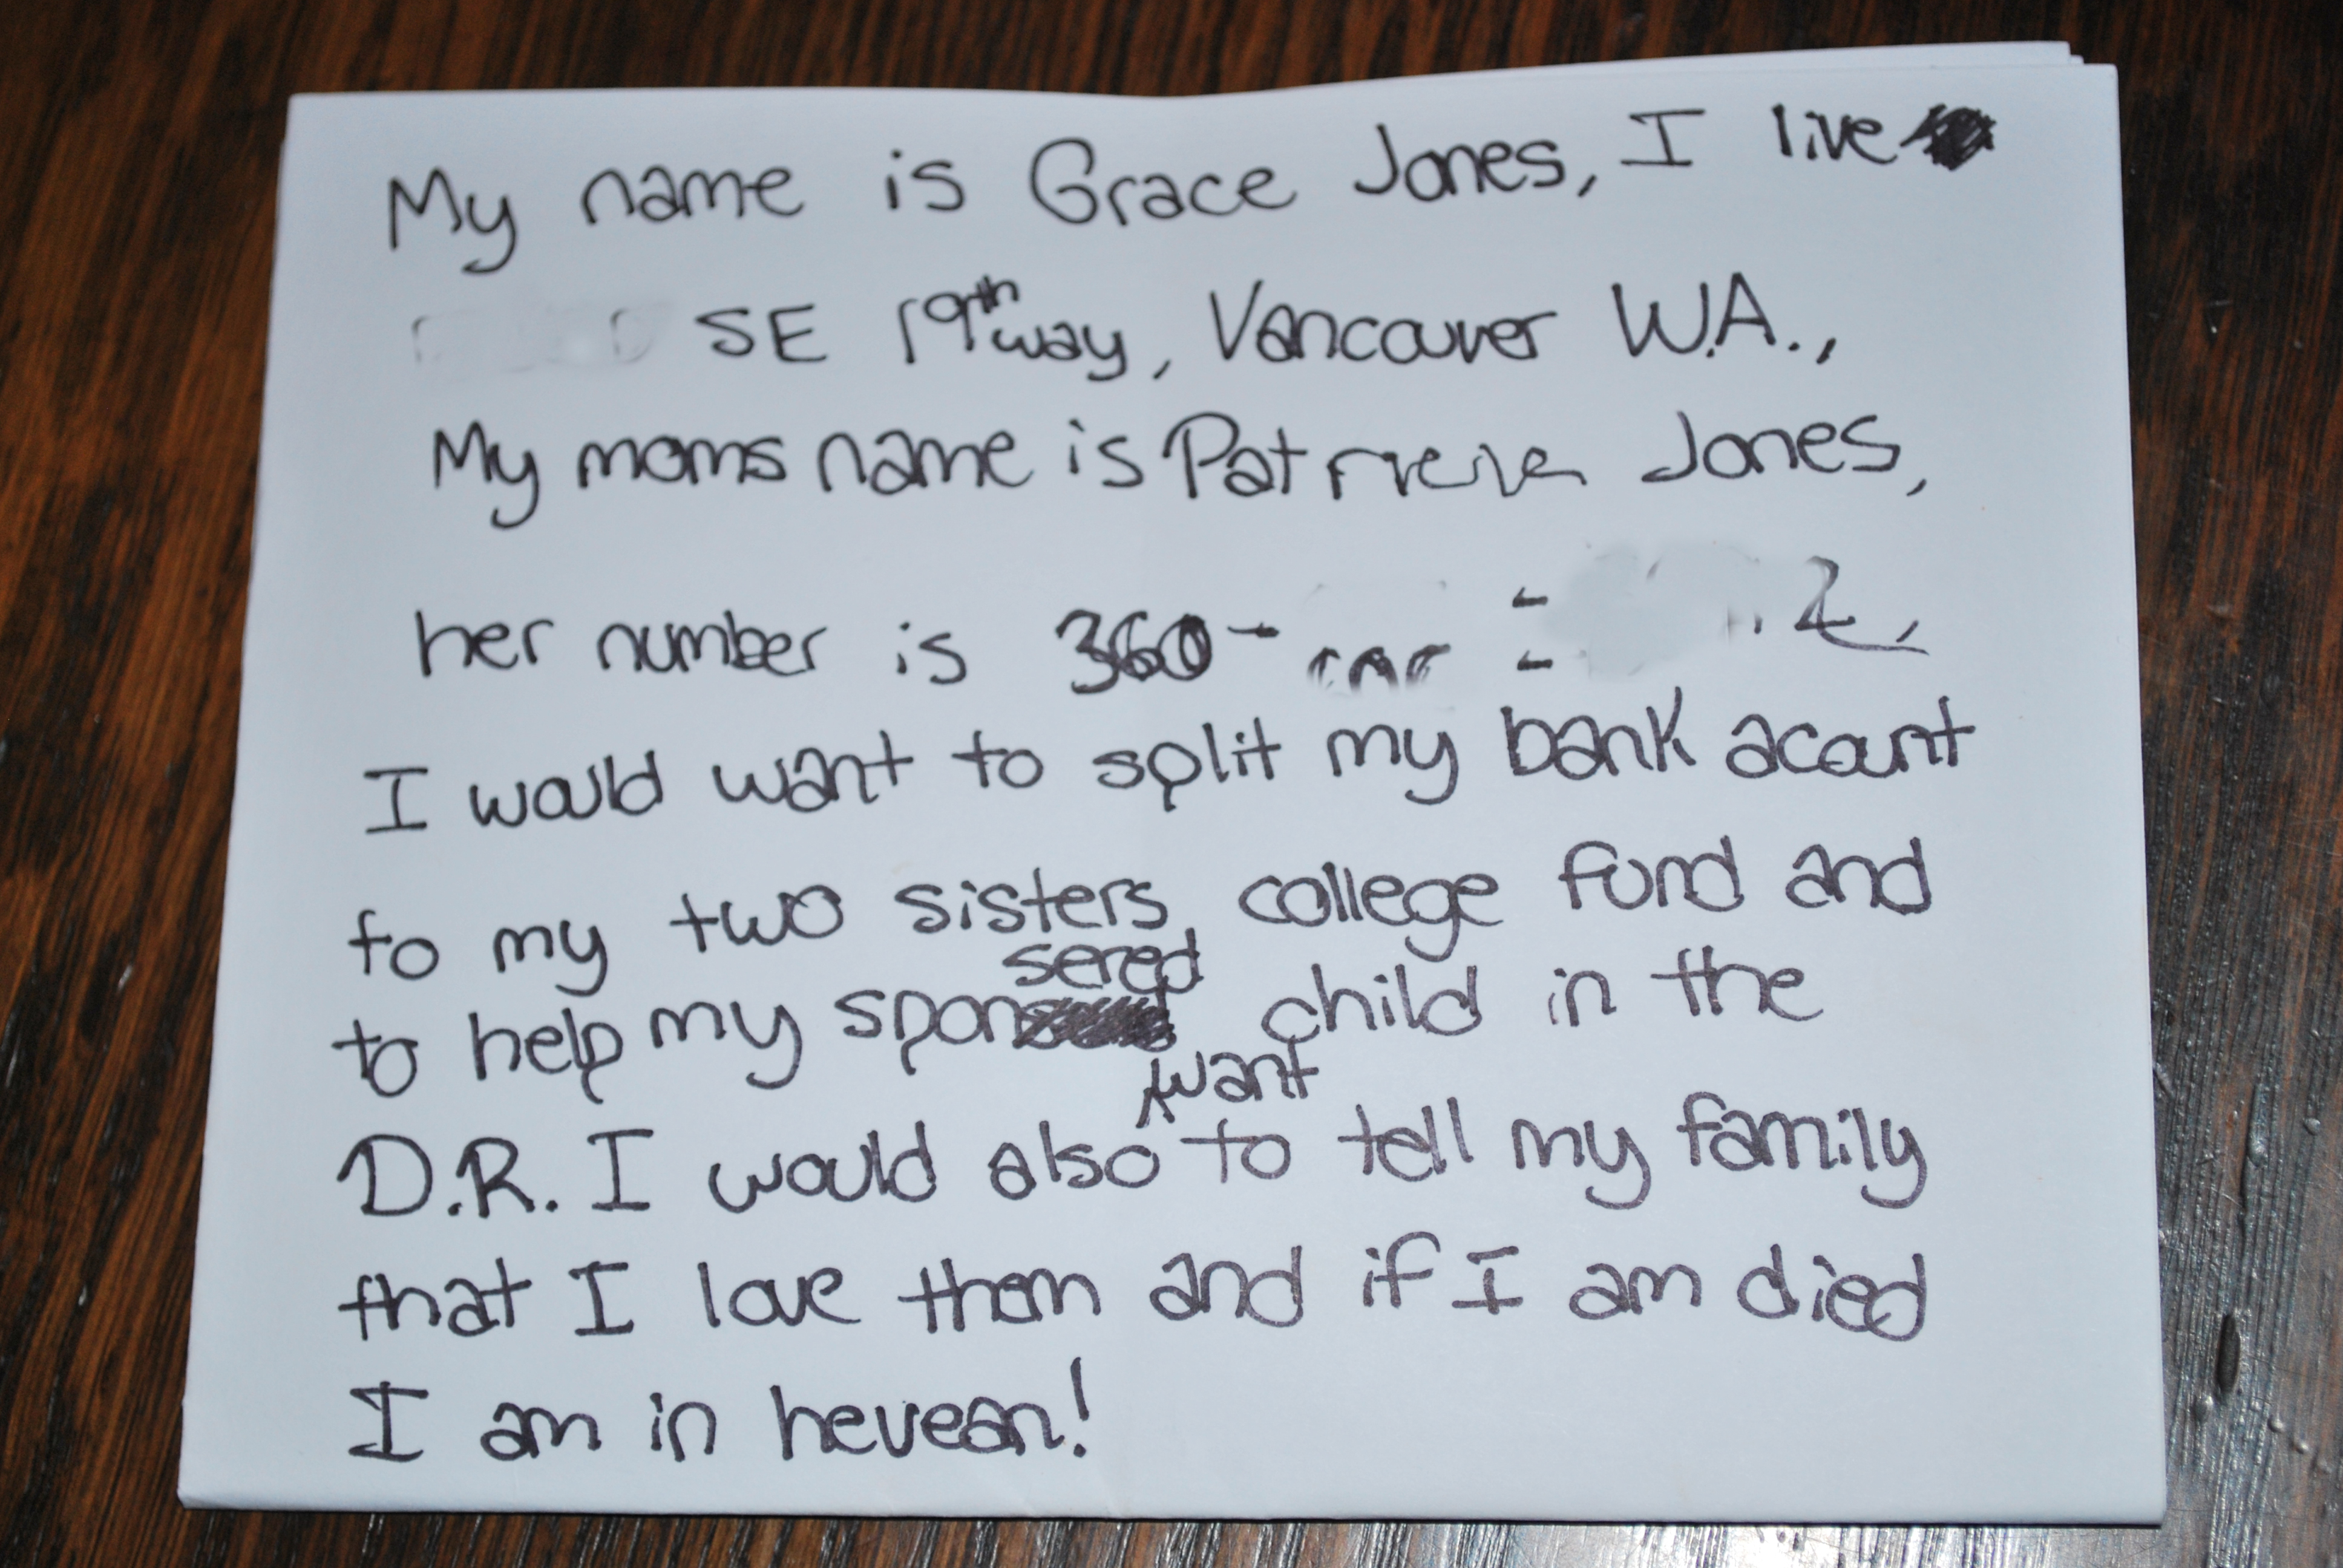 My name is Grace Jones, I live
SE 19th way, Vancouver W.A.,
My moms name is Jones,
her number is 360-
I would want to split my bank acount
to my two sisters, college fund and
to help my sponsered child in the
D.R. I would also want to tell my family
that I love them and if I am died
I am in hevean!